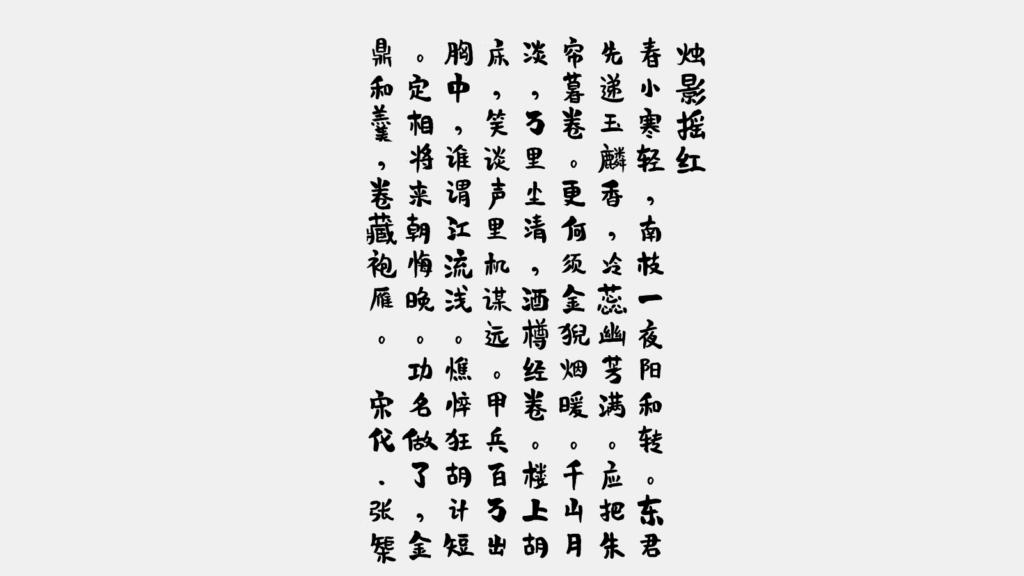 烛影摇红
春小寒轻，南枝一夜阳和转。东君
先递玉麟香，冷蕊幽芳满。应把朱
帘暮卷。更何须金猊烟暖。千山月
淡，万里尘清，酒樽经卷。楼上胡
床，笑谈声里机谋远。甲兵百万出
胸中，谁谓江流浅。憔悴狂胡计短
。定相将来朝悔晚。功名做了，金
鼎和羹，卷藏袍雁。 宋代.张榘